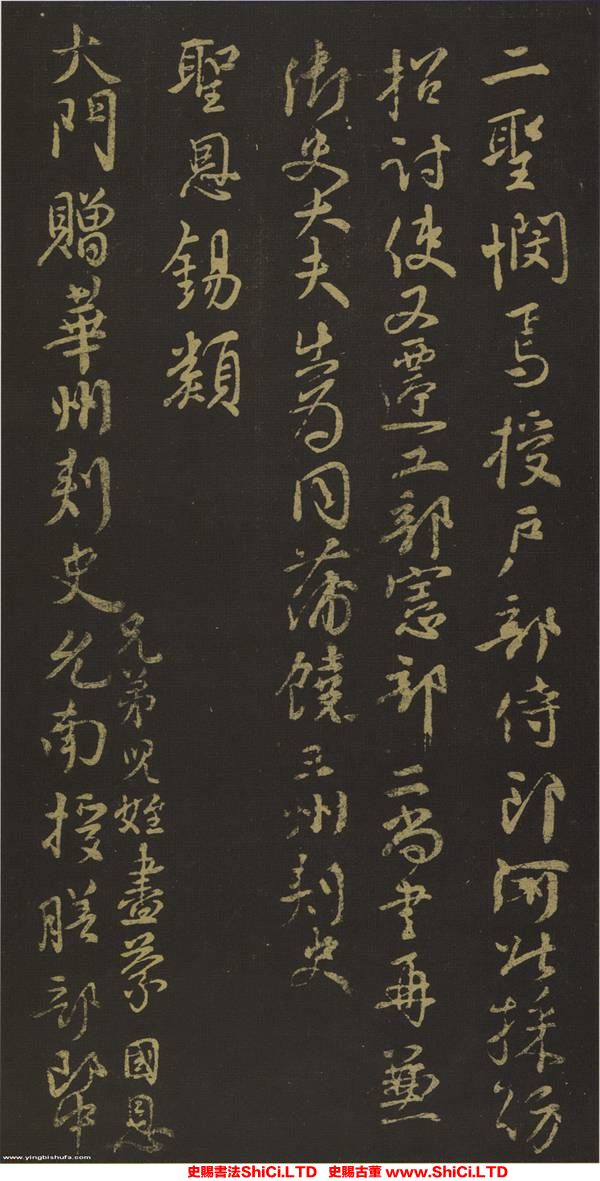 二聖憫焉授戶部侍郎河北採訪
招討使又遷工部憲部二尚書再兼
御史大夫出為同蒲饒三州刺史
聖恩錫類
兄弟兒姪盡蒙國恩
大門贈華州刺史允南授膳部郎中
www.yingbishufa.com
史賜書法ShiCi.LTD 史賜古董 www.ShiCi.LTD